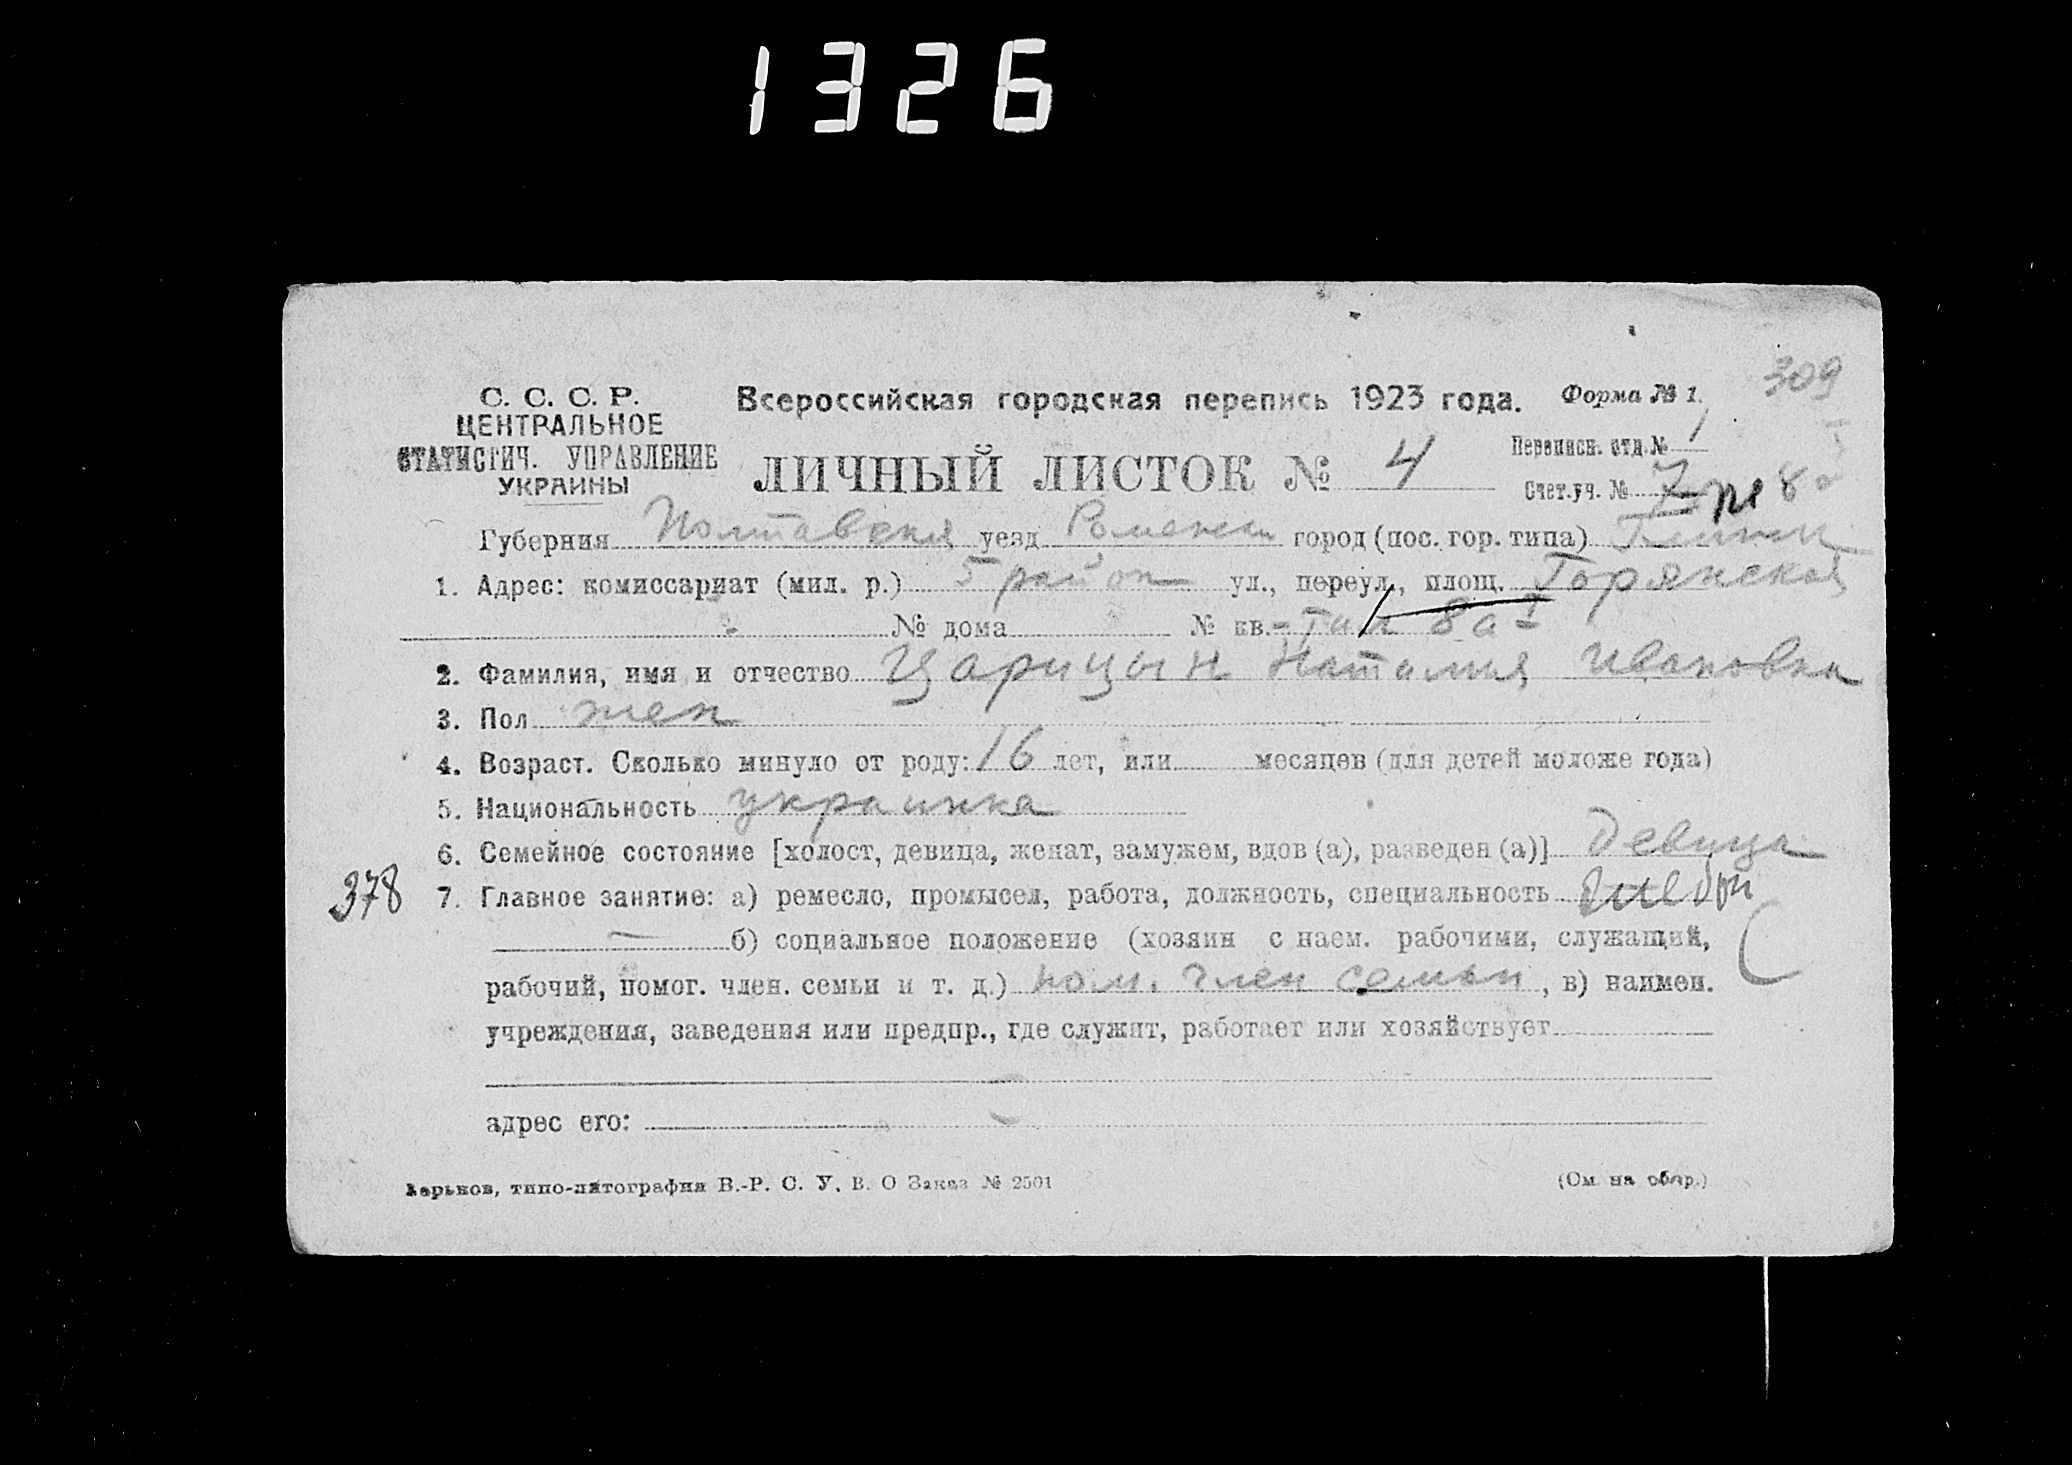 1326
309
С. С. С. Р.
ЦЕНТРАЛЬНОЕ
СТАТИСТИЧ. УПРАВЛЕНИЕ
УКРАИНЫ
Всероссийская городская перепись 1923 года. Форма № 1.
ЛИЧНЫЙ ЛИСТОК № 4
Переписн. отд. № 1
Счет. уч. № 7
Губерния Полтавская уезд Роменск город (пос. гор. типа)
1. Адрес: комиссариат (мил. р.) 5 район ул., переул., площ. Горянская
№ дома № кв. 8а
2. Фамилия, имя и отчество Царицын Наталия Ивановна
3. Пол жен
4. Возраст. Сколько минуло от роду: 16 лет, или месяцев (для детей моложе года)
5. Национальность украинка
6. Семейное состояние [холост, девица, женат, замужем, вдов (а), разведен (а)] Девица
378
7. Главное занятие: а) ремесло, промысел, работа, должность, специальность
б) социальное положение (хозяин с наем. рабочими, служащий,
рабочий, помог. член. семьи и т. д.) пом. член семьи, в) наимен.
учреждения, заведения или предпр., где служит, работает или хозяйствует
адрес его:
Харьков, типо-литография В.-Р. С. У. В. О Заказ № 2501
(См. на обор.)